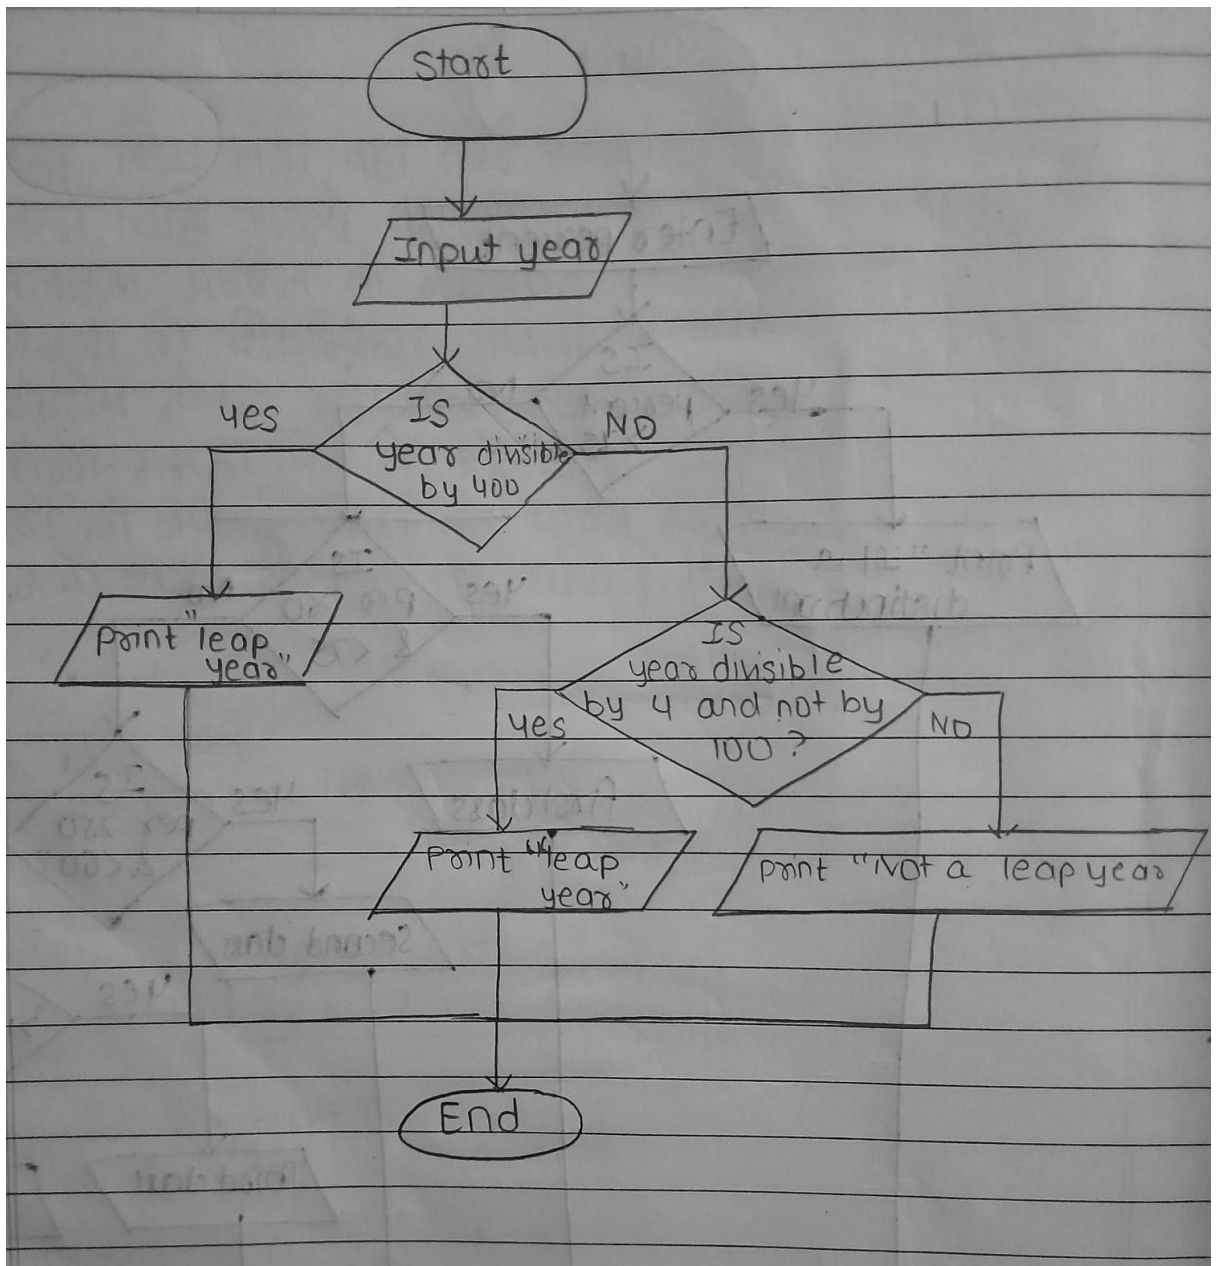 Start
Input year
yes
IS
NO
year divisible
by 400
print "leap
year"
IS
year divisible
by 4 and not by
100 ?
yes
NO
print "leap
year"
print "Not a leap year
End